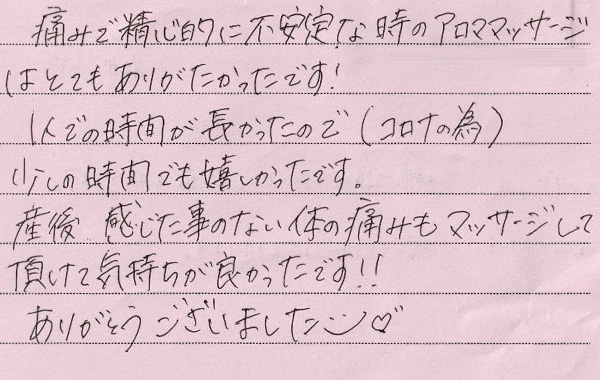 痛みで精心的に不安定な時のアロママッサージ
はとてもありがたかったです!
1人での時間が長かったので(コロナの為)
少しの時間でも嬉しかったです。
産後 感じた事のない体の痛みもマッサージして
頂けて気持ちが良かったです!!
ありがとうございました